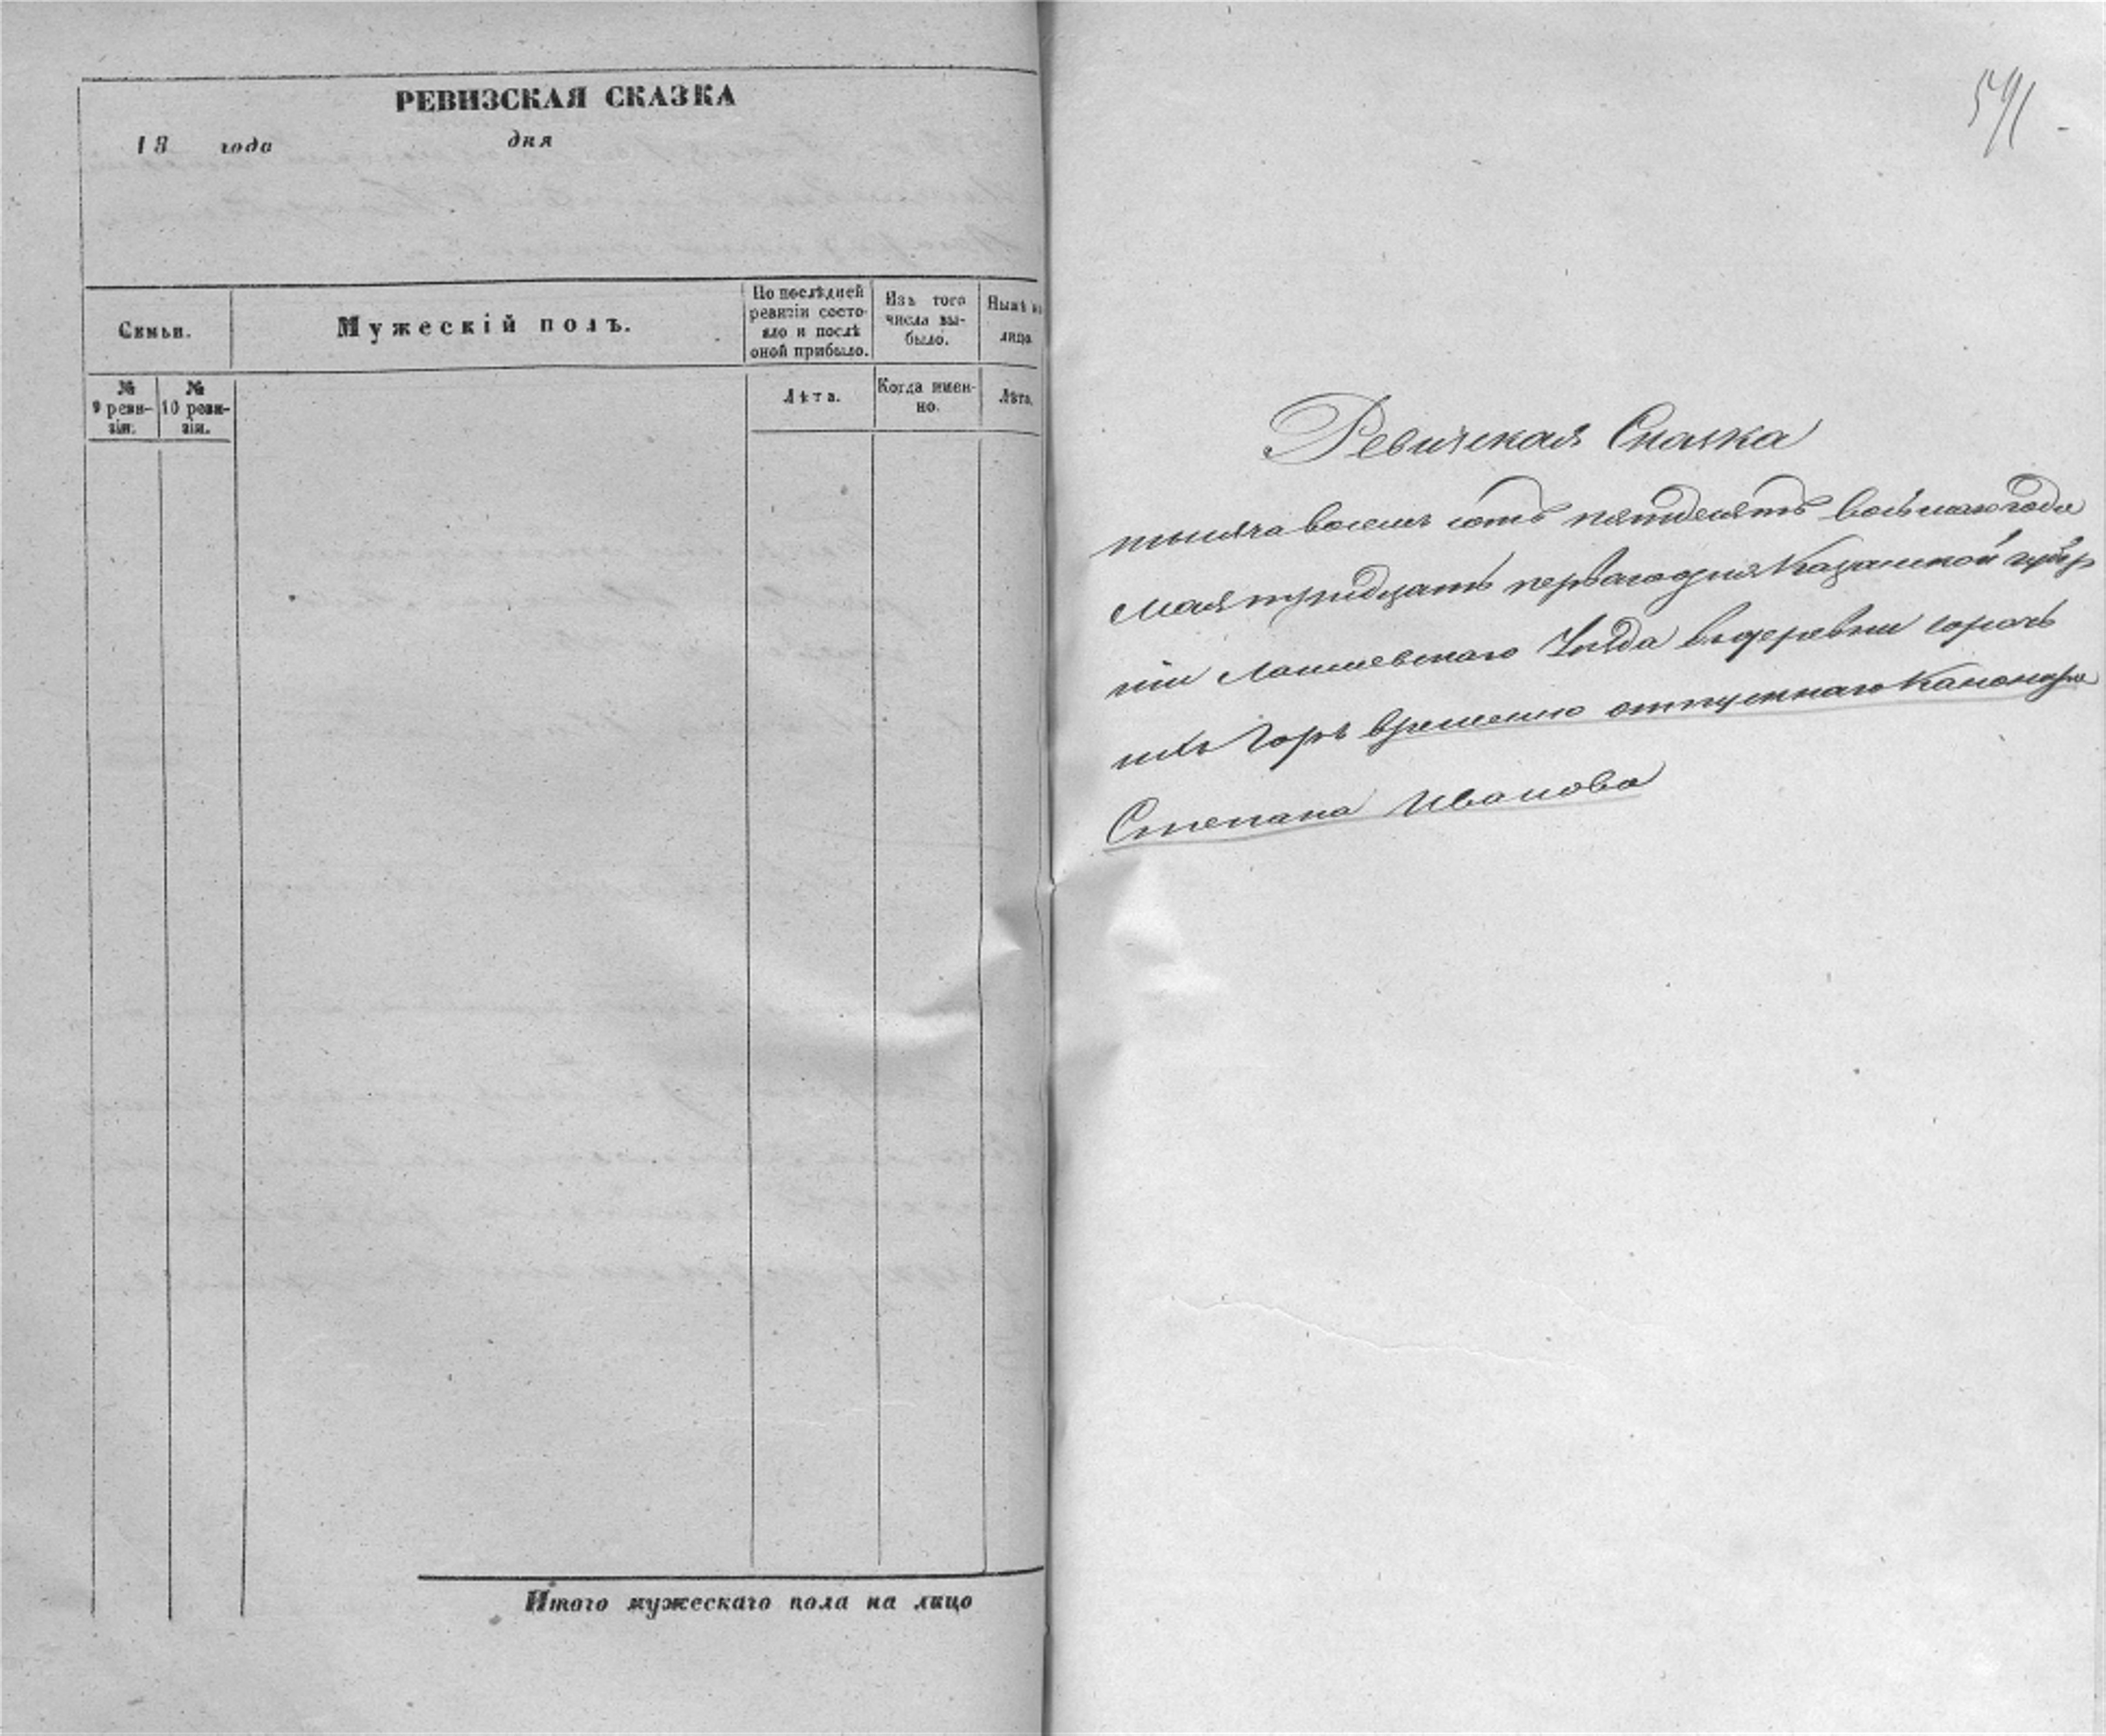 РЕВИЗСКАЯ СКАЗКА
18 года дня
Семьи.
Мужескій полъ.
По послѣдней
ревизіи состо-
яло и послѣ
оной прибыло.
Изъ того
числа вы-
было.
Нынѣ на
лицо.
№
9 реви-
зіи.
№
10 реви-
зіи.
Лѣта.
Когда имен-
но.
Лѣта.
Итого мужескаго пола на лицо
591
Ревизская Сказка
тысяча восемь сотъ пятдесятъ восьмаго года
Мая тридцать перваго дня Казанской губер
ніи Лаишевскаго Уезда въ деревни
Горъ временно отпускнаго Канонера
Степана Иванова